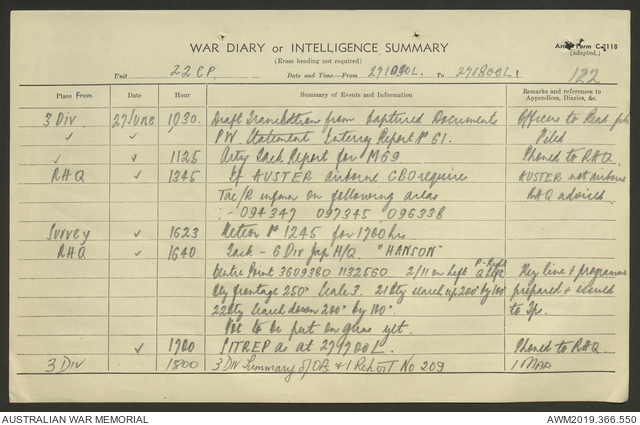 WAR DIARY or INTELLIGENCE SUMMARY
Army Form C.2118
(Erase heading not required)
(adapted.)
Unit 22 CP. Date and Time—From 271000L. To 271800L. 122
Place From Date Hour Summary of Events and Information Remarks and references to Appendices, Diaries, &c.
3 Div 27 June 1030. Draft Translation from Captured Documents Officers to Read file
✓ ✓ PW. Statement Interrog Report No 61. Filed
✓ ✓ 1125 Arty Task Report for M69 Phoned to RAQ.
RHQ ✓ 1345 If AUSTER airborne CBO require AUSTER not airborne
Tac/R infmn on following areas RHQ advised.
:- 094347 097345 096338
Survey ✓ 1623 Meteor No 1245 for 1700 hrs
RHQ ✓ 1640 Task - 6 Div Jap H/Q. "HANSON"
Centre Point 3609380 1132560 2/11 on Left P-Right Q Left Key line + programme
Bty frontage 250° Scale 3. 21 Bty search up 200° by 100° prepared + issued
22 Bty search down 200° by 100°. to Tps.
Not to be put on guns yet.
✓ 1700 SITREP as at 271700L. Phoned to RHQ.
3 Div 1800 3 Div Summary of OPs + I Report No 209 1 Map
AUSTRALIAN WAR MEMORIAL AWM2019.366.550